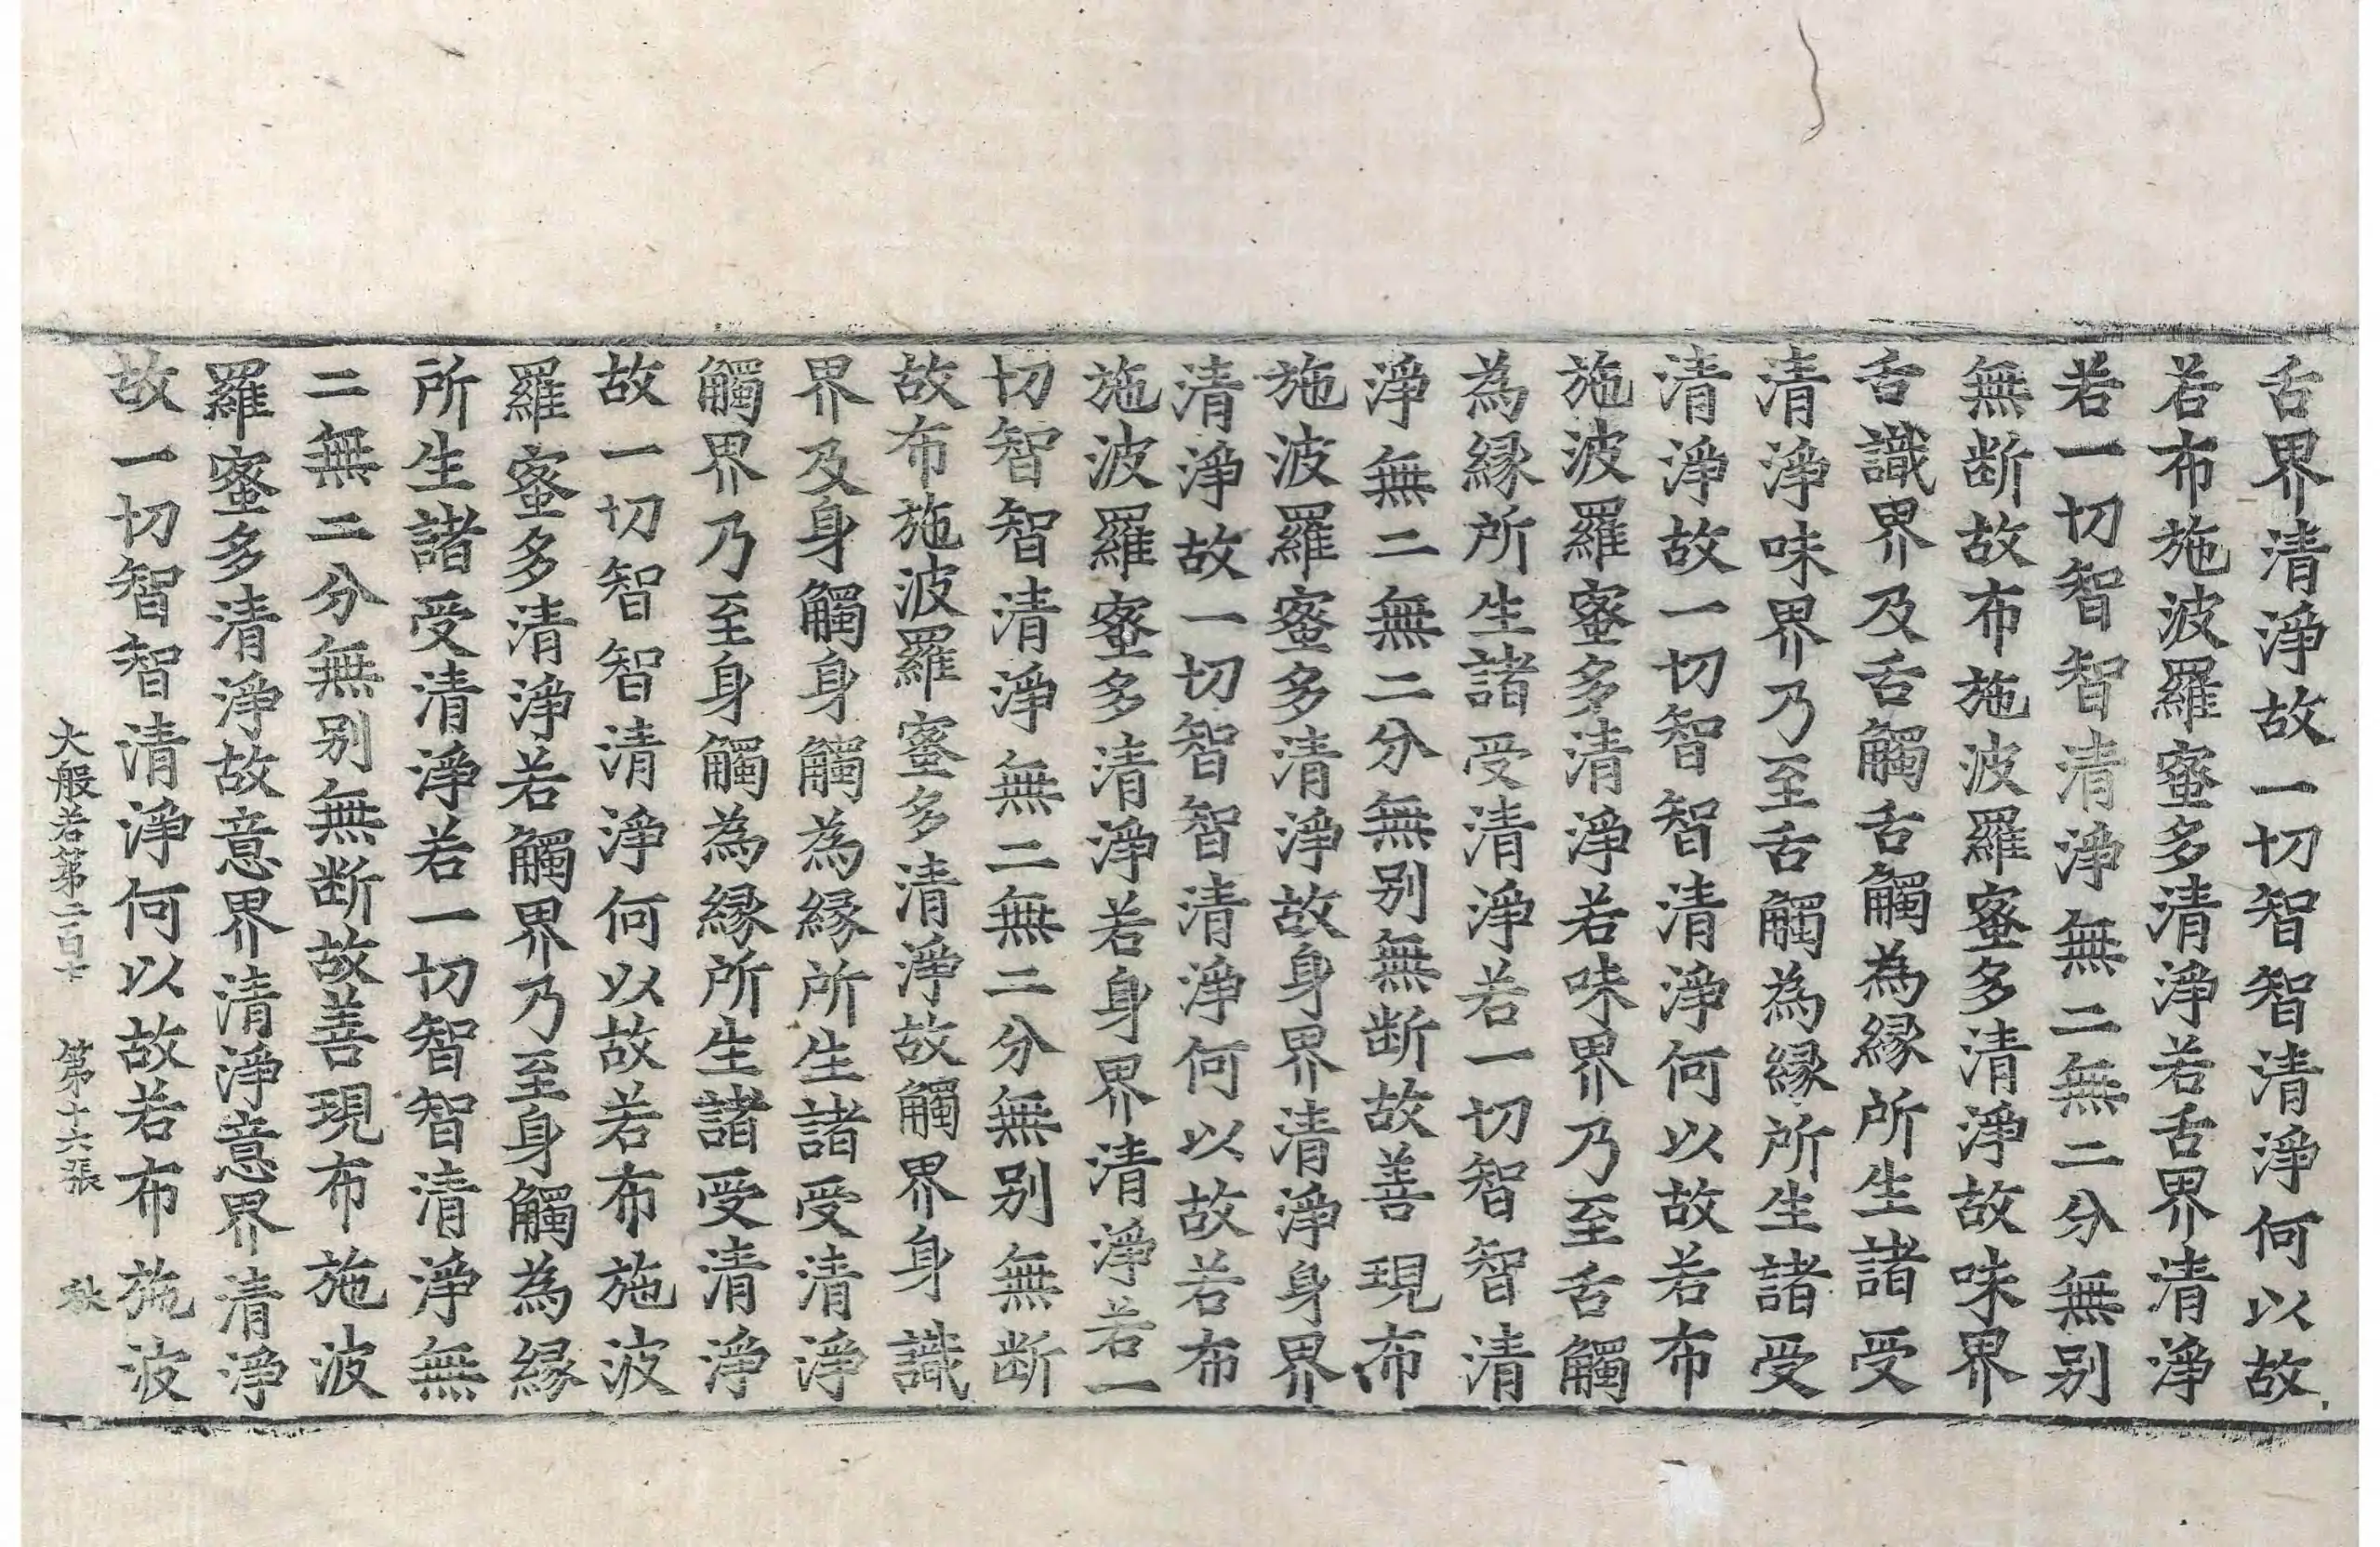 舌界清淨故一切智智清淨何以故
若布施波羅蜜多清淨若舌界清淨
若一切智智清淨無二無二分無別
無断故布施波羅蜜多清淨故味界
舌識界及舌觸舌觸為縁所生諸受
清淨味界乃至舌觸為縁所生諸受
清淨故一切智智清淨何以故若布
施波羅蜜多清淨若味界乃至舌觸
為縁所生諸受清淨若一切智智清
淨無二無二分無別無断故善現布
施波羅蜜多清淨故身界清淨身界
清淨故一切智智清淨何以故若布
施波羅蜜多清淨若身界清淨若一
切智智清淨無二無二分無別無断
故布施波羅蜜多清淨故觸界身識
界及身觸身觸為縁所生諸受清淨
觸界乃至身觸為縁所生諸受清淨
故一切智智清淨何以故若布施波
羅蜜多清淨若觸界乃至身觸為縁
所生諸受清淨若一切智智清淨無
二無二分無別無断故善現布施波
羅蜜多清淨故意界清淨意界清淨
故一切智智清淨何以故若布施波
大般若第二百十 第十六張 秋